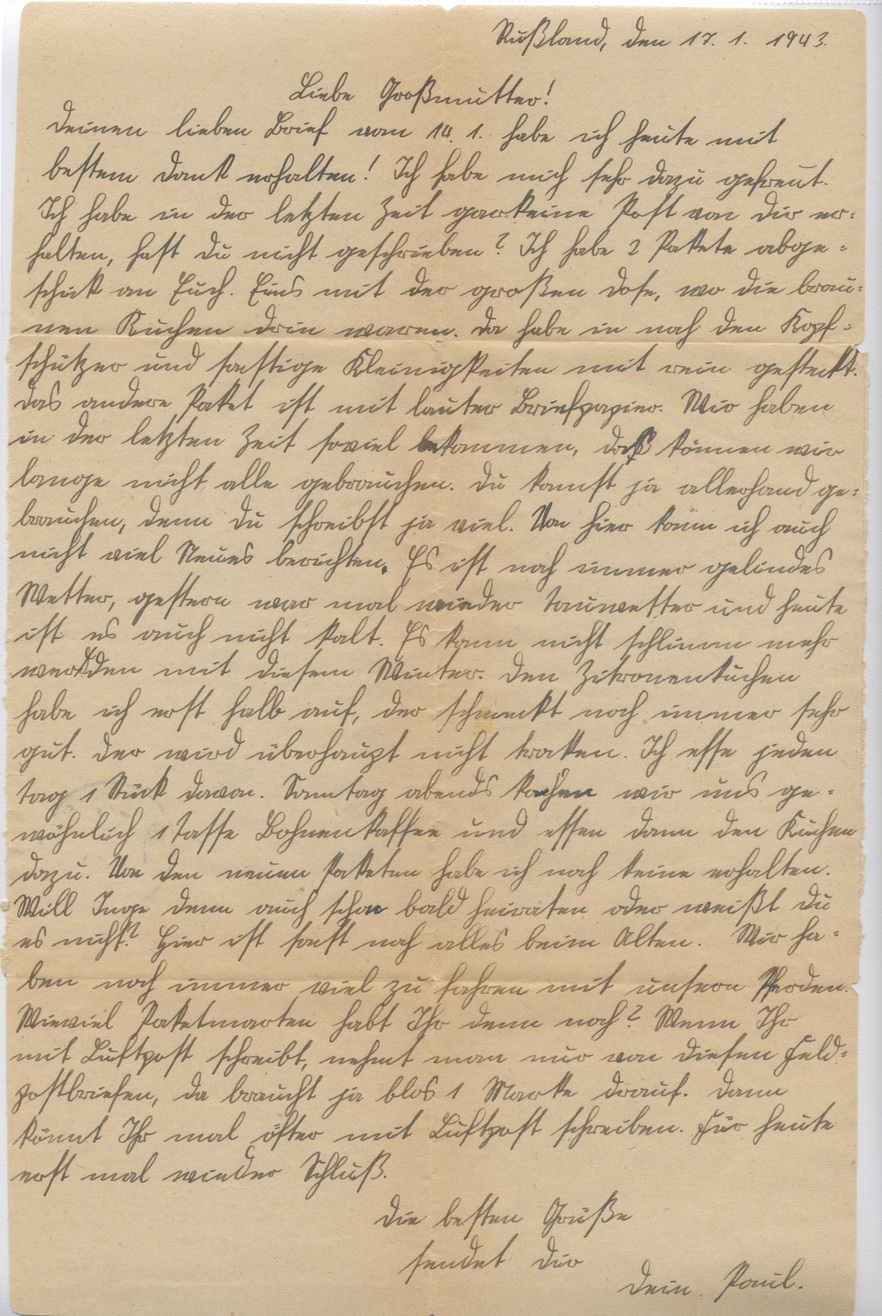 Rußland, den 17. 1. 1943.
Liebe Großmutter!
Deinen lieben Brief vom 10. 1. habe ich heute mit
bestem Dank erhalten! Ich habe mich sehr dazu gefreut.
Ich habe in der letzten Zeit garkeine Post von Dir er-
halten, hast Du nicht geschrieben? Ich habe 2 Pakete abge-
schickt an Euch. Eins mit der großen Dose, wo die brau-
nen Kuchen drin waren. Da habe in noch den Kopf-
schützer und sonstige Kleinigkeiten mit rein gesteckt.
Das andere Paket ist mit lauter Briefpapier. Wir haben
in der letzten Zeit soviel bekommen, daß können wir
lange nicht alle gebrauchen. Du kannst ja allerhand ge-
brauchen, denn Du schreibst ja viel. Von hier kann ich auch
nicht viel Neues berichten. Es ist noch immer gelindes
Wetter, gestern war mal wieder Tauwetter und heute
ist es auch nicht kalt. Es kann nicht schlimm mehr
werden mit diesem Winter. Den Zitronenkuchen
habe ich erst halb auf, der schmeckt noch immer sehr
gut. Der wird überhaupt nicht trocken. Ich esse jeden
Tag 1 Stück davon. Sonntag abends kochen wir uns ge-
wöhnlich 1 Tasse Bohnenkaffee und essen dann den Kuchen
dazu. Von den neuen Paketen habe ich noch keine erhalten.
Will Inge denn auch schon bald heiraten oder weißt Du
es nicht? Hier ist sonst noch alles beim Alten. Wir ha-
ben noch immer viel zu fahren mit unsern Pferden.
Wieviel Paketmarken habt Ihr denn noch? Wenn Ihr
mit Luftpost schreibt, nehmt man nur von diesen Feld-
postbriefen, da braucht ja blos 1 Marke drauf. Dann
könnt Ihr mal öfter mit Luftpost schreiben. Für heute
erst mal wieder Schluß.
Die besten Grüße
sendet Dir
Dein Paul.